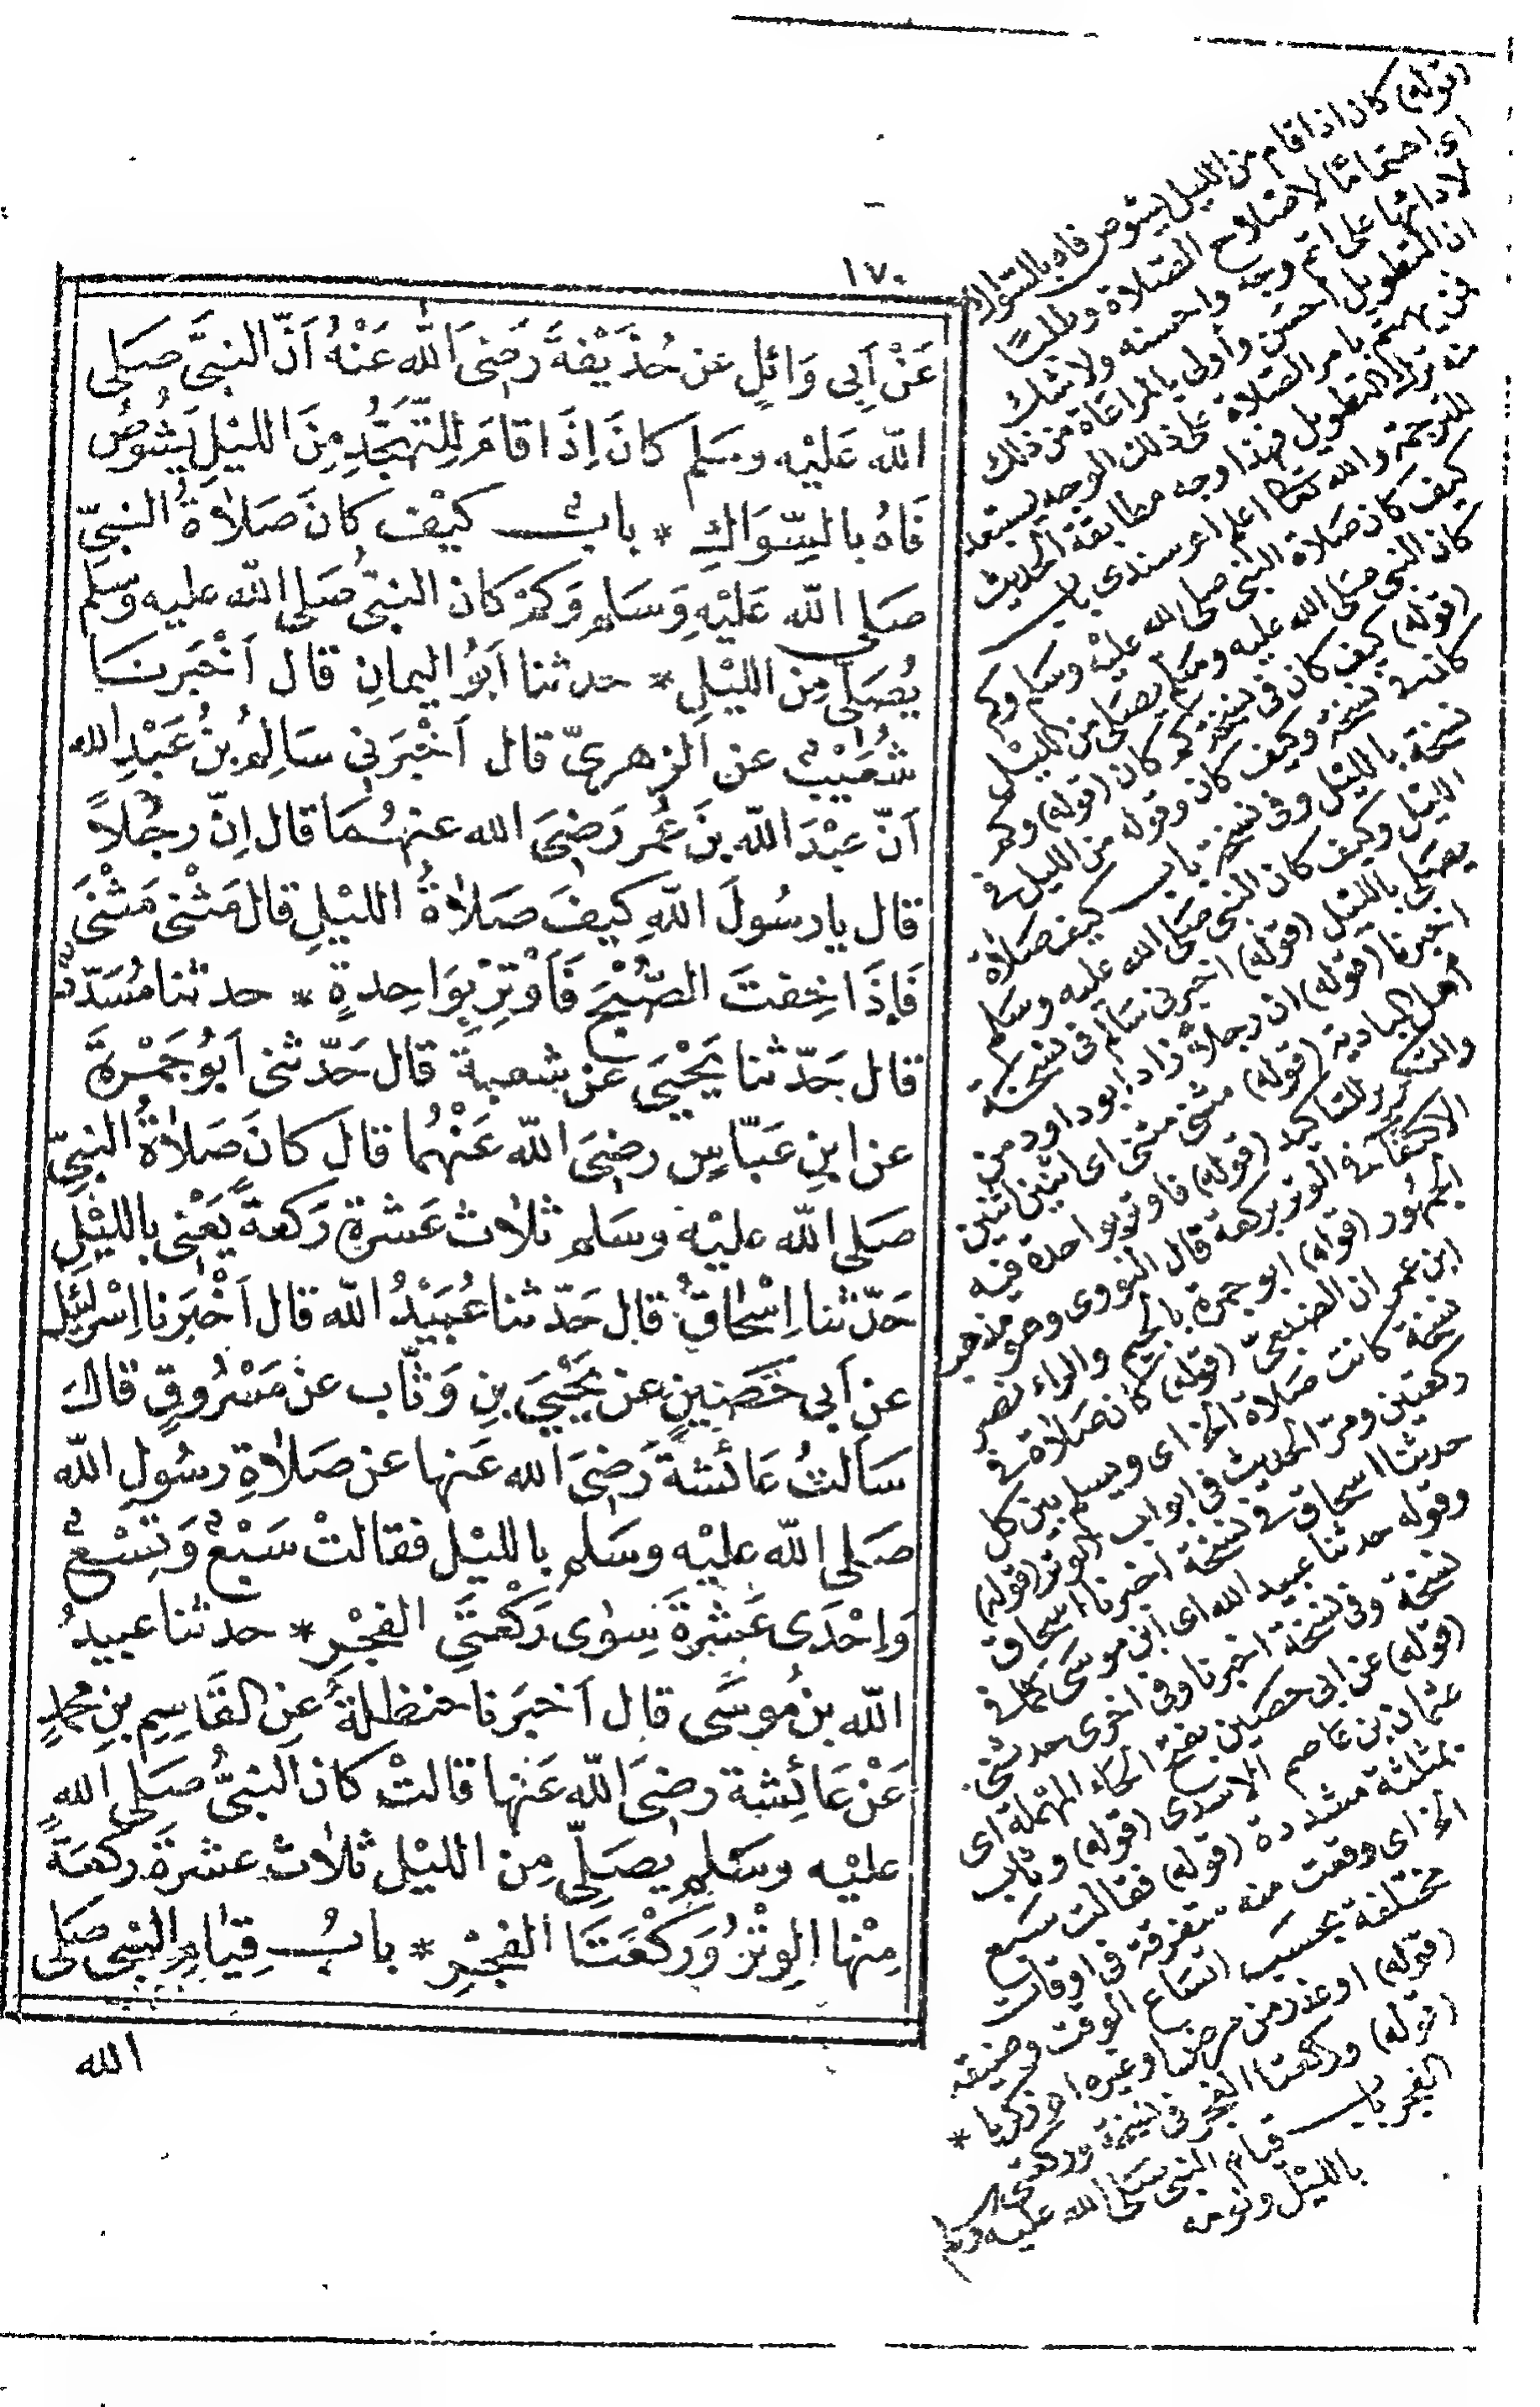 ١٧٠
عَنْ أَبِى وَائِلٍ عن حُذَيْفَةَ رَضِىَ اللّٰه عَنْهُ أَنَّ النبىَّ صَلى
اللّٰه عَلَيْه وسَلم كانَ إِذَا قامَ لِلتَّهَجُّدِ مِنَ الليْلِ يَشُوصُ
فَاهُ بالسِّوَاكِ * بابٌ كيْفَ كانَ صَلاةُ النبىِّ
صَلى اللّٰه عَلَيْهِ وَسَلم وَكمْ كان النبىُّ صَلى اللّٰه عليه وسلم
يُصَلى مِنَ الليْلِ * حدثنا أبُو اليمانِ قال أخْبَرنا
شُعَيْبٌ عن الزهرىّ قال أخْبَرَنِى سَالِمُ بنُ عَبْدِ الله
أنّ عبْدَ اللّٰه بنَ عُمر رَضِىَ الله عنهُمَا قال إنّ رجُلاً
قال يا رسُولَ اللّٰهِ كيفَ صَلاةُ الليْلِ قال مَثْنى مَثْنَى
فَإِذَا خِفتَ الصُّبْحَ فَأَوْتِرْ بِوَاحِدةٍ * حدثنا مُسَدّدٌ
قال حَدّثنا يَحْيَى عن شعبةَ قال حَدّثنى أبُو جَمْرةَ
عن ابنِ عَبّاسٍ رضِىَ اللّٰه عَنْهُما قال كانَ صَلاةُ النبىِّ
صَلى اللّٰه عليْه وسَلم ثلاث عَشرةَ رَكعةً يَعْنِى بالليْلِ
حَدّثنا إسْحٰاقُ قال حَدّثنا عُبَيْدُ اللّٰه قال أخْبَرنا إسْرائِيل
عن أبى حَصِينٍ عن يَحْيَى بنِ وَثّاب عن مَسْرُوقٍ قاك
سَألتُ عَائشةَ رَضِىَ الله عَنها عن صَلاةِ رسُولِ اللّٰه
صَلى اللّٰه عليْه وسَلم بالليْل فقالتْ سَبْعٌ وَتِسْعٌ
وَإحْدَى عَشْرةَ سِوٰى رَكْعَتَىِ الفجْرِ * حدثنا عبيدُ
اللّٰه بنُ مُوسَى قال أخبَرَنا حنظلةُ عن القَاسِمِ بنِ محمدٍ
عَنْ عَائِشة رضِىَ اللّٰه عَنها قالتْ كان النبىُّ صَلى اللّٰه
عليْه وسَلم يصَلِّى مِن الليْل ثلاث عشرةَ ركعةً
مِنْها الوِتْرُ وَرَكْعَتَا الفجْرِ * بابُ قِيٰامِ النبى صَلى
الله
(قوله) كان اذا قام من الليل يشوص فاه بالسواك
اى اهتماما لاصلاح الصلاة وطلبا
لادائها على اتم وجه واحسنه ولاشك
ان التطويل احسن وأولى بالمراعاة من ذلك
فمن يهتم بامر الصلاة على ذلك الوجه يستبعد
منه ترك التطويل فهذا وجه مطابقة الحديث
للترجمة والله تعالى اعلم اهـ سندى باب
كيف كان صلاة النبى صلى الله عليه وسلم وكم
كان النبى صلى الله عليه وسلم يصلى من الليل
(قوله) كيف كان فى نسخة كم كان (قوله) وكم
كان فى نسخة وكيف كان وقوله من الليل فى
نسخة بالليل وفى نسخة باب كيف صلاة
الليل وكيف كان النبى صلى الله عليه وسلم
يصلى بالليل (قوله) اخبرنى سالم فى نسخة
اخبرنا (قوله) ان رجلا زاد ابو داود من
اهل البادية (قوله) مثنى مثنى اى اثنين اثنين
والتكرير للتاكيد (قوله) فاوتر بواحدة فيه
الاكتفاء فى الوتر بركعة قال النووى وهو مذهب
الجمهور (قوله) ابو جمرة بالجيم والراء نصر
ابن عمران الضبعى (قوله) كان صلاة فى
نسخة كانت صلاة الخ اى ويسلم بين كل
ركعتين ومر الحديث فى ابواب الوتر (قوله)
حدثنا اسحاق فى نسخة اخبرنا اسحاق
وقوله حدثنا عبيد الله اى ابن موسى كما فى
نسخة وفى نسخة اخبرنا وفى اخرى حدثنى
(قوله) عن ابى حصين بفتح الحاء المهملة اى
عثمان بن عاصم الاسدى (قوله) وثاب
بمثلثة مشددة (قوله) فقالت سبع
الخ اى وقعت منه متفرقة فى اوقات
مختلفة بحسب اتساع الوقت وضيقه
او عذر من مرض او غيره اهـ زكريا *
(قوله) وركعتا الفجر فى نسخة وركعتى
الفجر باب قيام النبى صلى الله عليه وسلم
بالليل ونومه